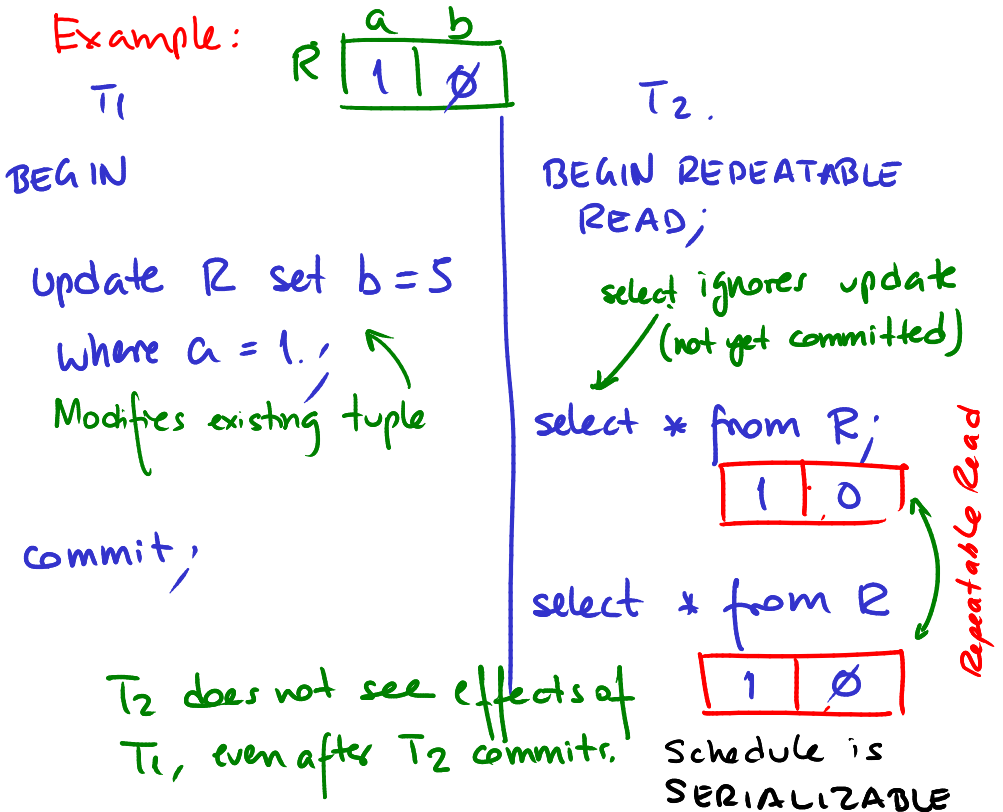 Example:
a b
R 1 0
T1
BEGIN
update R set b = 5
where a = 1.;
Modifies existing tuple
commit;
T2.
BEGIN REPEATABLE
READ;
select ignores update
(not yet committed)
select * from R;
1 0
select * from R
1 0
Repeatable Read
T2 does not see effects of
T1, even after T2 commits.
Schedule is
SERIALIZABLE